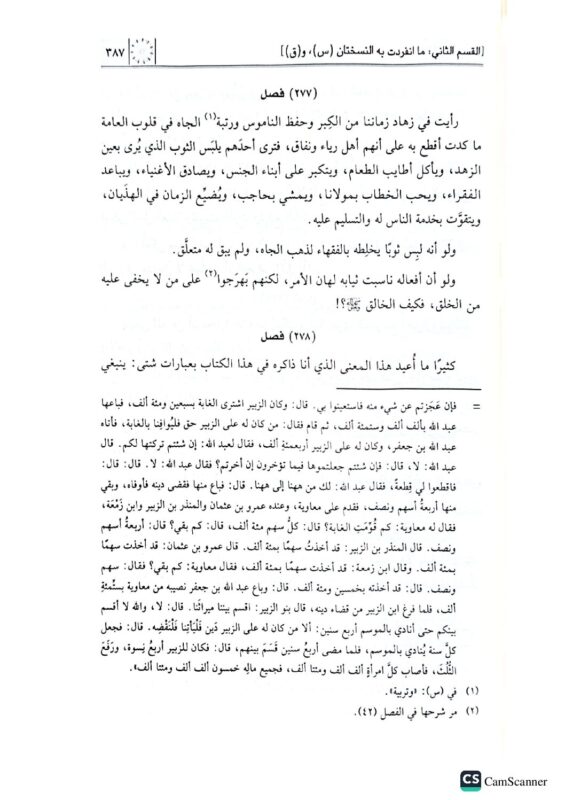 [القسم الثاني: ما انفردت به النسختان (س)، و(ق)]
٣٨٧
(٢٧٧) فصل
رأيت في زهاد زماننا من الكِبر وحفظ الناموس ورتبة(١) الجاه في قلوب العامة
ما كدت أقطع به على أنهم أهل رياء ونفاق، فترى أحدَهم يلبَس الثوب الذي يُرى بعين
الزهد، ويأكل أطايب الطعام، ويتكبر على أبناء الجنس، ويصادق الأغنياء، ويباعد
الفقراء، ويحب الخطاب بمولانا، ويمشي بحاجب، ويُضيِّع الزمان في الهذَيان،
ويتقوَّت بخدمة الناس له والتسليم عليه.
ولو أنه لبِس ثوبًا يخلِطه بالفقهاء لذهب الجاه، ولم يبق له متعلَّق.
ولو أن أفعاله ناسبت ثيابه لهان الأمر، لكنهم بَهرَجوا(٢) على من لا يخفى عليه
من الخلق، فكيف الخالق ﷻ؟!
(٢٧٨) فصل
كثيرًا ما أُعيد هذا المعنى الذي أنا ذاكره في هذا الكتاب بعبارات شتى: ينبغي
= فإن عَجَزتم عن شيء منه فاستعينوا بي. قال: وكان الزبير اشترى الغابة بسبعين ومئة ألف، فباعها
عبد الله بألف ألف وستمئة ألف، ثم قام فقال: من كان له على الزبير حق فليُوافِنا بالغابة، فأتاه
عبد الله بن جعفر، وكان له على الزبير أربعمئةِ ألف، فقال لعبد الله: إن شئتم تركتها لكم. قال
عبد الله: لا، قال: فإن شئتم جعلتموها فيما تؤخرون إن أخرتم؟ فقال عبد الله: لا. قال: قال:
فاقطعوا لي قِطعةً، فقال عبد الله: لك من ههنا إلى ههنا. قال: فباع منها فقضى دينه فأوفاه، وبقي
منها أربعةُ أسهم ونصف، فقدم على معاوية، وعنده عمرو بن عثمان والمنذر بن الزبير وابن زَمْعَة،
فقال له معاوية: كم قُوِّمَتِ الغابة؟ قال: كلُّ سهم مئة ألف، قال: كم بقي؟ قال: أربعةُ أسهم
ونصف. قال المنذر بن الزبير: قد أخذتُ سهمًا بمئة ألف. قال عمرو بن عثمان: قد أخذت سهمًا
بمئة ألف. وقال ابن زمعة: قد أخذت سهمًا بمئة ألف، فقال معاوية: كم بقي؟ فقال: سهم
ونصف. قال: قد أخذته بخمسين ومئة ألف. قال: وباع عبد الله بن جعفر نصيبه من معاوية بستِّمئةِ
ألف، فلما فرغ ابن الزبير من قضاء دينه، قال بنو الزبير: اقسم بيننا ميراثَنا. قال: لا، والله لا أقسم
بينكم حتى أنادي بالموسم أربع سنين: ألا من كان له على الزبير دَين فَلْيَأْتِنا فَلْنَقْضِه. قال: فجعل
كلَّ سنة يُنادي بالموسم، فلما مضى أربعُ سنين قَسَمَ بينهم، قال: فكان للزبير أربعُ نِسوة، ورَفَعَ
الثُّلُثَ، فأصاب كلَّ امرأةٍ ألف ألف ومئتا ألف، فجميع مالِه خمسون ألف ألف ومئتا ألف».
(١) في (س): «وتربية».
(٢) مر شرحها في الفصل (٤٢).
CS CamScanner